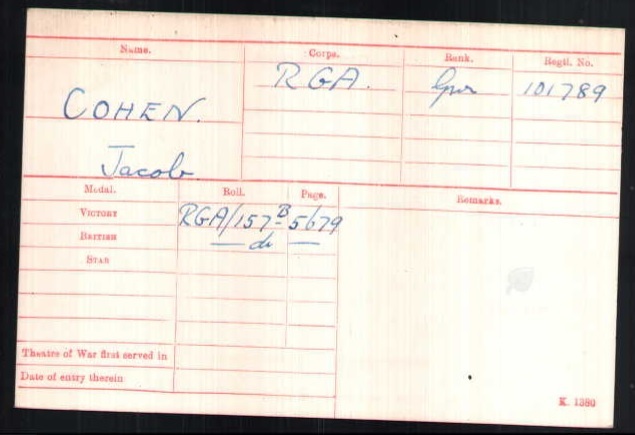 Name. Corps. Rank. Regtl. No.
COHEN. RGA. Gnr 101789
Jacob.
Medal. Roll. Page. Remarks.
VICTORY RGA/157B 5679
BRITISH — do —
STAR
Theatre of War first served in
Date of entry therein
K. 1380